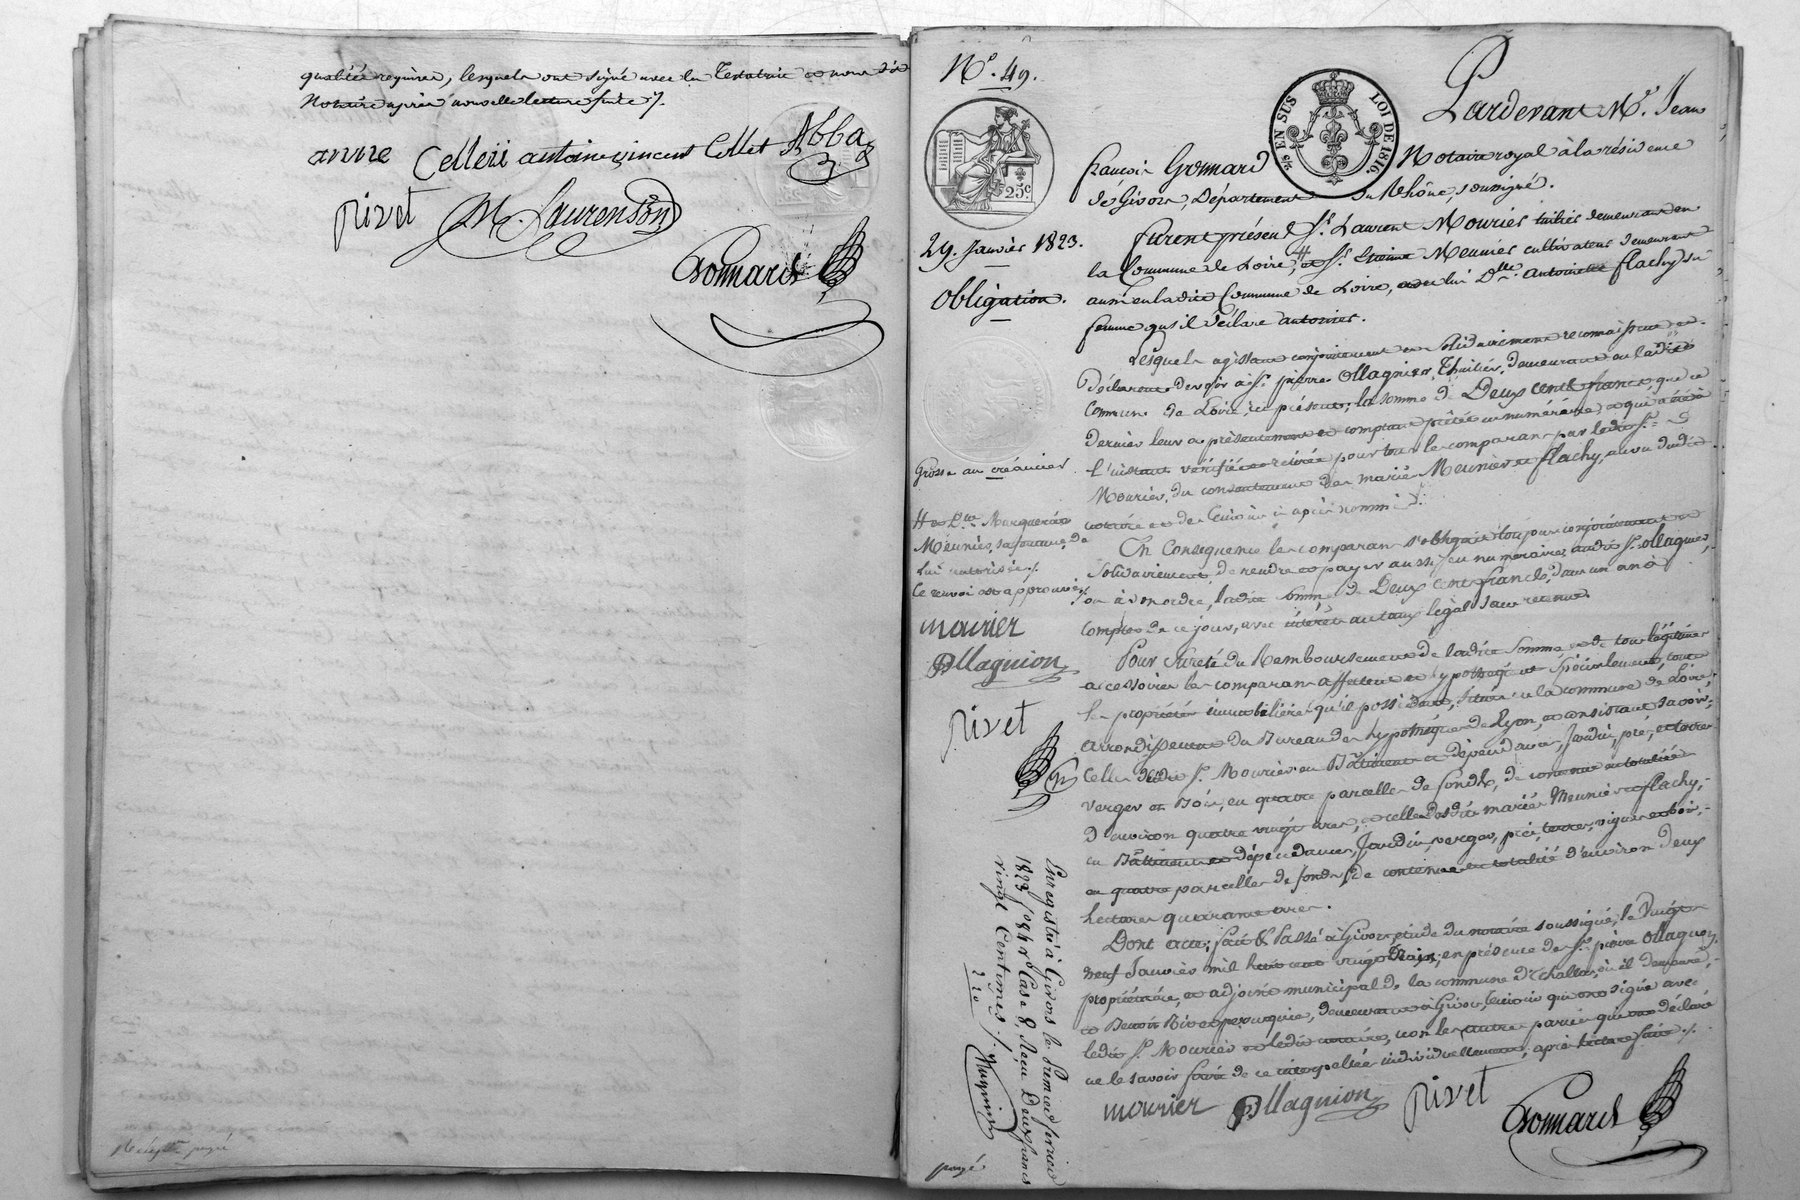 qualités requises, lesquels ont signé avec la Testatrice et nous dit
Notaire après nouvelle lecture faite ./.
anne Celleri antoine vincent Collet Abba
Rivet M. Laurenson
Gonnard
Reçu payé
Nº. 49.
25c.
3/10 EN SUS LOI DE 1816.
29. Janvier 1823.
Obligation.
Grosse au créancier
# et De. Marguerite
Meunier, sa femme, de
lui autorisée ./.
Ce renvoi est approuvé ./.
mourier
Ollagnion
Rivet
Enregistré à Givors le premier février
1823 fo 84 ro Case 8. Reçu Deux francs
vingt Centimes ./.
2 20
payé
Pardevant Me. Jean
françois Gonnard Notaire royal à la résidence
de Givors, Département du Rhône, soussigné.
furent présens Sr. Laurent Mourier tuilier demeurant en
la Commune de Loire, # et Sr. Etienne Meunier cultivateur demeurant
aussi en ladite Commune de Loire, avec lui Dlle. Antoinette flachy sa
femme qu'il déclare autoriser.
Lesquels agissant conjointement et solidairement reconnaissent et
Déclarent devoir à Sr. pierre Ollagnier, Thuilier, demeurant en ladite
Commune de Loire, ici présent, la somme de Deux cents francs, que ce
dernier leur a présentement et comptant prêtée en numéraire, et qui a été à
l'instant vérifiée et retirée pour tous les comparans par ledit Sr.
Mourier, du consentement des mariés Meunier et flachy, au vu dudit
notaire et des témoins ci après nommés.
En Conséquence les comparans s'obligent toujours conjointement et
solidairement, de rendre et payer aussi en numéraire, audit Sr. ollagnier,
ou à son ordre, ladite somme de Deux cents francs, dans un an à
compter de ce jour, avec intérêts au taux légal sans retenue.
Pour sureté du Remboursement de ladite somme et de tous légitimes
accessoires les comparans affectent et hypothèquent spécialement, toutes
les propriétés immobilières qu'ils possèdent, situées en la commune de Loire,
arrondissement du Bureau des hypothèques de Lyon, et consistant savoir;
Celles dudit Sr. Mourier en Bâtiment et dépendances, Jardin, pré, et terres
verger et Bois, en quatre parcelles de fonds, de contenue en totalité
d'environ quatre vingt ares, et celles desdits mariés Meunier et flachy,
en Bâtiment et dépendances, Jardin, verger, pré, terres, vignes et bois,
en quatre parcelles de fonds, de contenue en totalité d'environ deux
hectares quarante ares.
Dont acte; fait & Passé à Givors, étude du notaire soussigné, le Vingt
neuf Janvier mil huit cent vingt trois, en présence de Sr. pierre Ollagnon,
propriétaire, et adjoint municipal de la commune d'Echallas, où il demeure,
et Benoit Rivet perruquier, demeurant à Givors, témoins qui ont signé avec
ledit Sr. Mourier et ledit notaire, non les autres parties qui ont déclaré
ne le savoir faire de ce interpellées individuellement, après lecture faite ./.
mourier Ollagnion Rivet
Gonnard